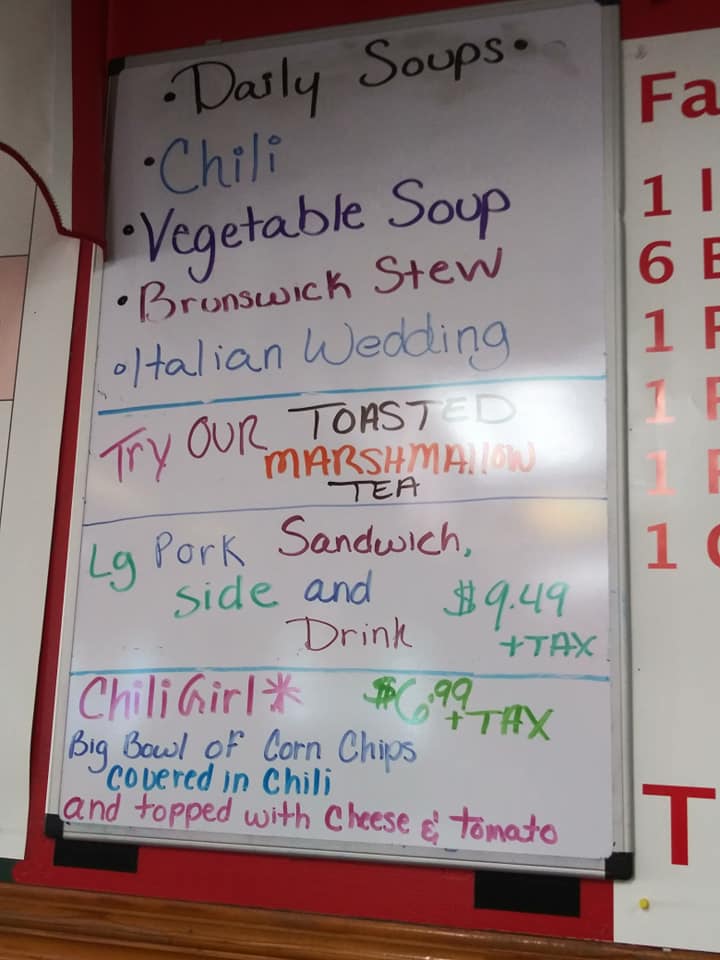 •Daily Soups•
•Chili
•Vegetable Soup
•Brunswick Stew
•Italian Wedding
Try OUR TOASTED
MARSHMALLOW
TEA
Lg Pork Sandwich,
side and $9.49
Drink +TAX
Chili Girl* $6.99
+TAX
Big Bowl of Corn Chips
covered in Chili
and topped with Cheese & Tomato
Fa
1
6
1
1
1
1
T